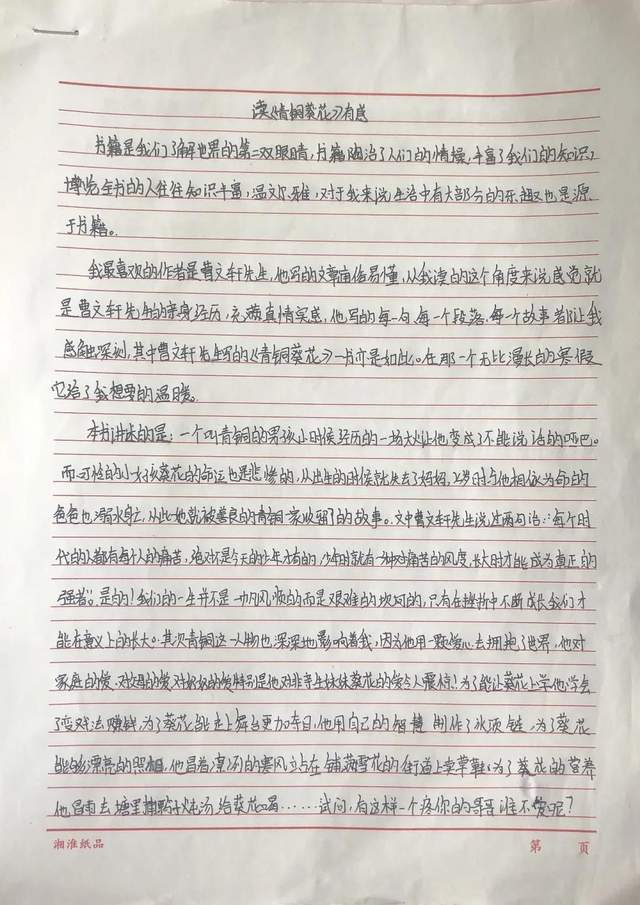 读《青铜葵花》有感
书籍是我们了解世界的第二双眼睛,书籍陶冶了人们的情操,丰富了我们的知识,
博览全书的人往往知识丰富,温文尔雅,对于我来说生活中有大部分的乐趣也是源
于书籍。
我最喜欢的作者是曹文轩先生,他写的文章通俗易懂,从我读的这个角度来说感觉就
是曹文轩先生的亲身经历,充满真情实感,他写的每一句、每一个段落、每个故事都让我
感触深刻,其中曹文轩先生写的《青铜葵花》一书亦是如此。在那一个无比漫长的寒假
它给了我想要的温暖。
本书讲述的是:一个叫青铜的男孩小时候经历的一场大火让他变成了不能说话的哑巴。
而可怜的小女孩葵花的命运也是悲惨的,从出生的时候就失去了妈妈,岁时与他相依为命的
爸爸也溺水身亡,从此她就被善良的青铜一家收留了的故事。文中曹文轩先生说过两句话:“每个时
代的人都有每个人的痛苦,绝对不是今天的少年才有的,少年时就有一种对痛苦的风度,长大时才能成为真正的
强者”。是的!我们的一生并不是一帆风顺的而是艰难的坎坷的,只有在挫折中不断成长我们才
能在意义上的长大。其次青铜这一人物也深深地影响着我,因为他用一颗爱心去拥抱了世界,他对
家庭的爱、对父母的爱、对奶奶的爱特别是他对非亲生妹妹葵花的爱令人震惊!为了能让葵花上学他学会
了变戏法赚钱,为了葵花能走上舞台更加夺目,他用自己的智慧制作了冰项链,为了葵花
能够漂亮的照相,他冒着凛冽的寒风立站在铺满雪花的街道上卖草鞋,为了葵花的营养
他冒雨去塘里捕鸭子炖汤给葵花喝……试问,有这样一个疼你的哥哥谁不爱呢?
湘淮纸品 第 页